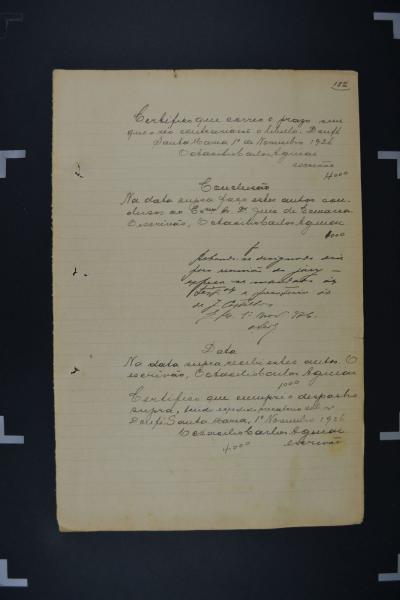 102
Certifico que correu o prazo sem
que o réo contrariasse o libello. Dou fé
Santa Maria, 1º de Novembro 1926
Octacilio Carlos Aguiar
escrivão
4000
Conclusão
Na data supra faço estes autos con-
clusos ao Exmo Sr. Dr. Juiz de Comarca.
O escrivão, Octacilio Carlos Aguiar
1000
designado dia
para reunião do jury
mandados
de J. Castilhos
S. M. 1º Nov. 926
Data
Na data supra recebi estes autos. O
escrivão, Octacilio Carlos Aguiar
1000
Certifico que cumpri o despacho
supra,
Dou fé. Santa Maria, 1º Novembro 1926
Octacilio Carlos Aguiar
4000 escrivão